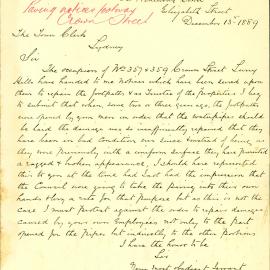 Elizabeth Street
Paving notices footway
Crown Street
December 13th 1889
The Town Clerk
Sydney
Sir
The occupiers of No 357 & 359 Crown Street Surry
Hills have handed to me notices which have been served upon
them to repair the footpath & as Trustee of the properties I beg
to submit that when, some two or three years ago, the footpaths
were opened by your men in order that the waterpipes should
be laid the damage was so insufficiently repaired that they
have been in bad condition ever since & instead of being, as
they were previously, with a uniform surface they have presented
a ragged & broken appearance, I should have represented
this to you at the time had I not the impression that
the Council were going to take the paving into their own
hands & levy a rate for that purpose but as this is not the
case I must protest against the order to repair damages
caused by your own Employees not only to the part
opened for the Pipes but indirectly to the other portions
I have the honor to be
Sir
Your most obedient Servant